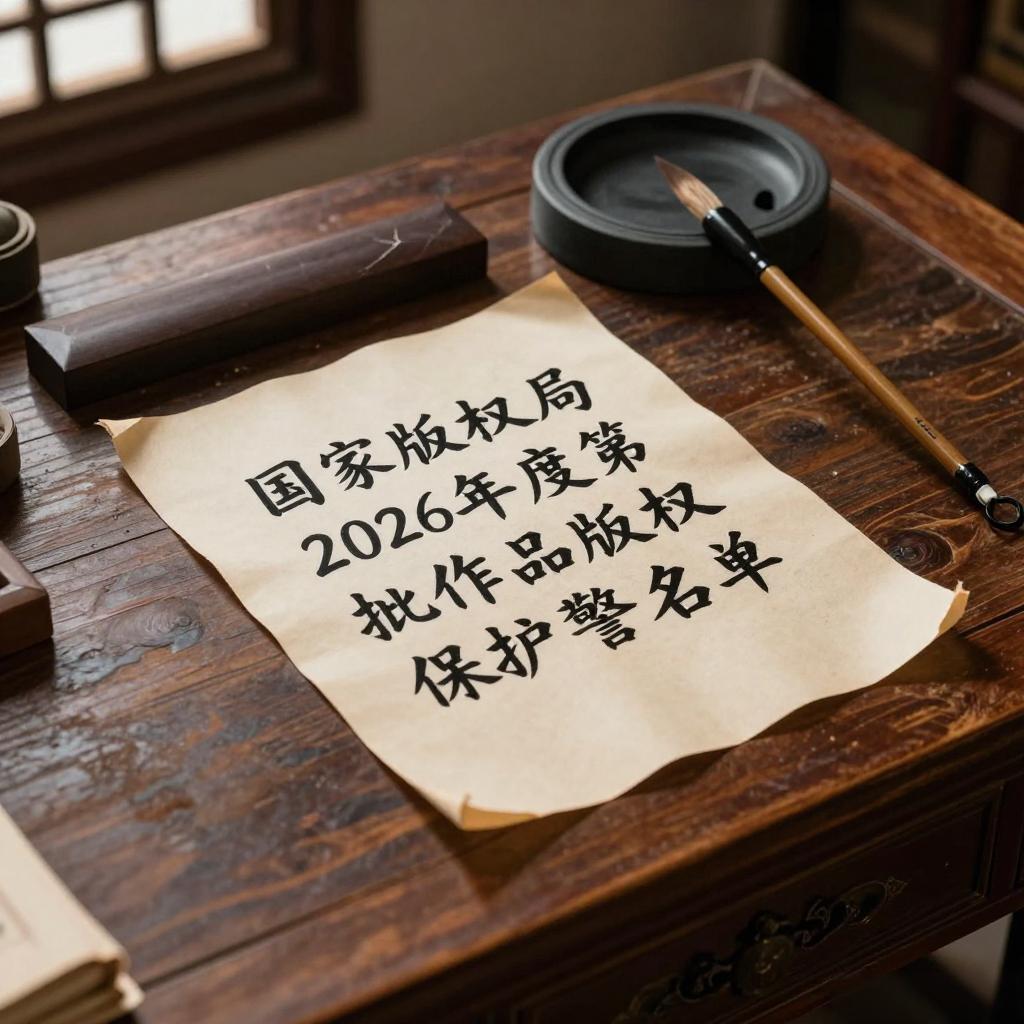 国家版权局
2026年度第
批作品版权
保护警名单